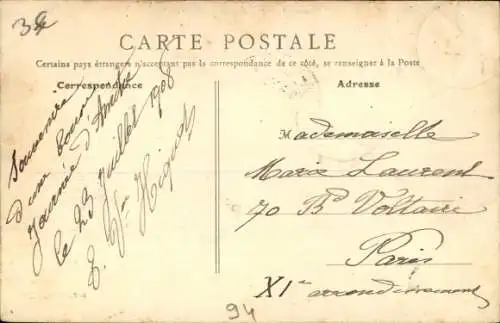 CARTE POSTALE
Certains pays étrangers n'acceptant pas la correspondance de ce côté, se renseigner à la Poste
Correspondance
Adresse
Souvenir
d'une bonne
journée d'Amitié
le 23 Juillet 1908
Hique
Mademoiselle
Marie Laurent
70 Bd Voltaire
Paris
XIe arrondissement
94